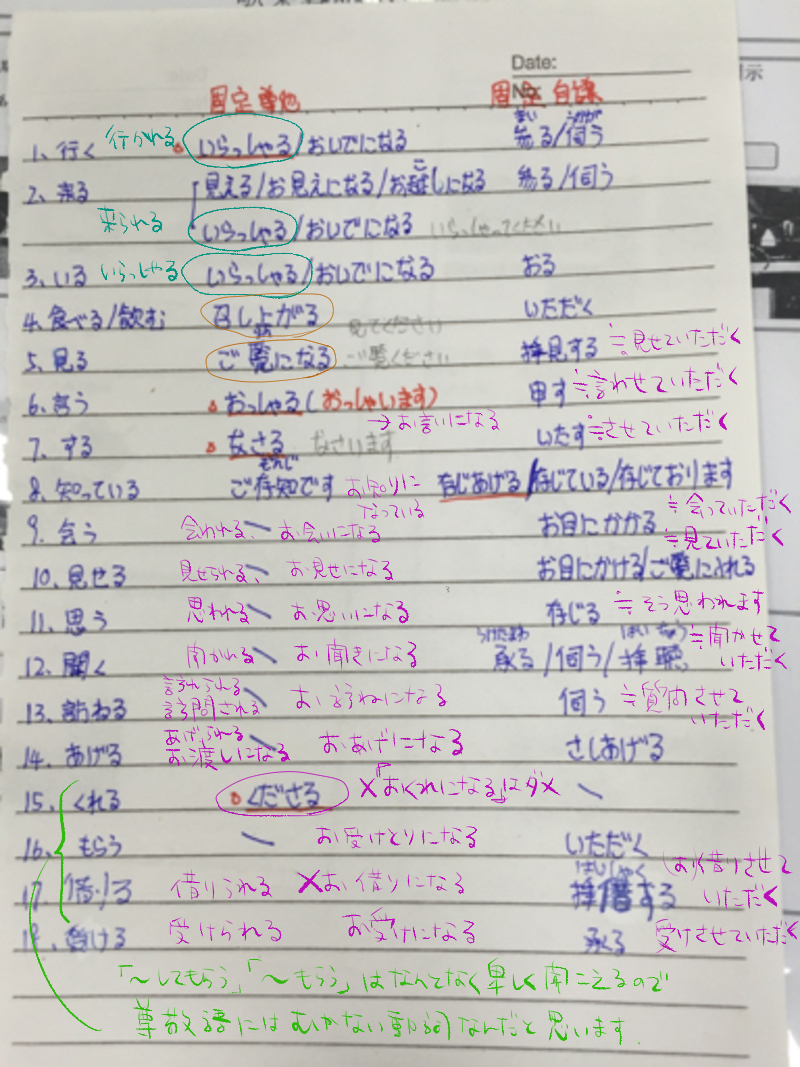 Date:
No:
固定 尊他 固定 自謙
1. 行く 行かれる いらっしゃる/おいでになる 参る/伺う
2. 来る 見える/お見えになる/お越しになる 参る/伺う
来られる いらっしゃる/おいでになる いらっしゃってください
3. いる いらっしゃる いらっしゃる/おいでになる おる
4. 食べる/飲む 召し上がる いただく
見てください
5. 見る ご覧になる ご覧ください 拝見する ≒見せていただく
6. 言う おっしゃる(おっしゃいます) 申す ≒言わせていただく
→お言いになる
7. する なさる なさいます いたす ≒させていただく
8. 知っている ご存知です お知りになっている 存じあげる/存じている/存じております
9. 会う 会われる、 お会いになる お目にかかる ≒会っていただく
10. 見せる 見せられる、 お見せになる お目にかける/ご覧に入れる ≒見ていただく
11. 思う 思われる お思いになる 存じる ≒そう思われます
うけたまわ はいちょう
12. 聞く 聞かれる お聞きになる 承る/伺う/拝聴 ≒聞かせていただく
13. 訪ねる 訪ねられる 訪問される お訪ねになる 伺う ≒質問させていただく
14. あげる あげられる お渡しになる おあげになる さしあげる
15. くれる くださる ×「おくれになる」はダメ
16. もらう お受けとりになる いただく
はいしゃく
17. 借りる 借りられる ×お借りになる 拝借する お借りさせていただく
18. 受ける 受けられる お受けになる 承る 受けさせていただく
「〜してもらう」「〜もらう」はなんとなく卑しく聞こえるので
尊敬語にはむかない動詞なんだと思います.